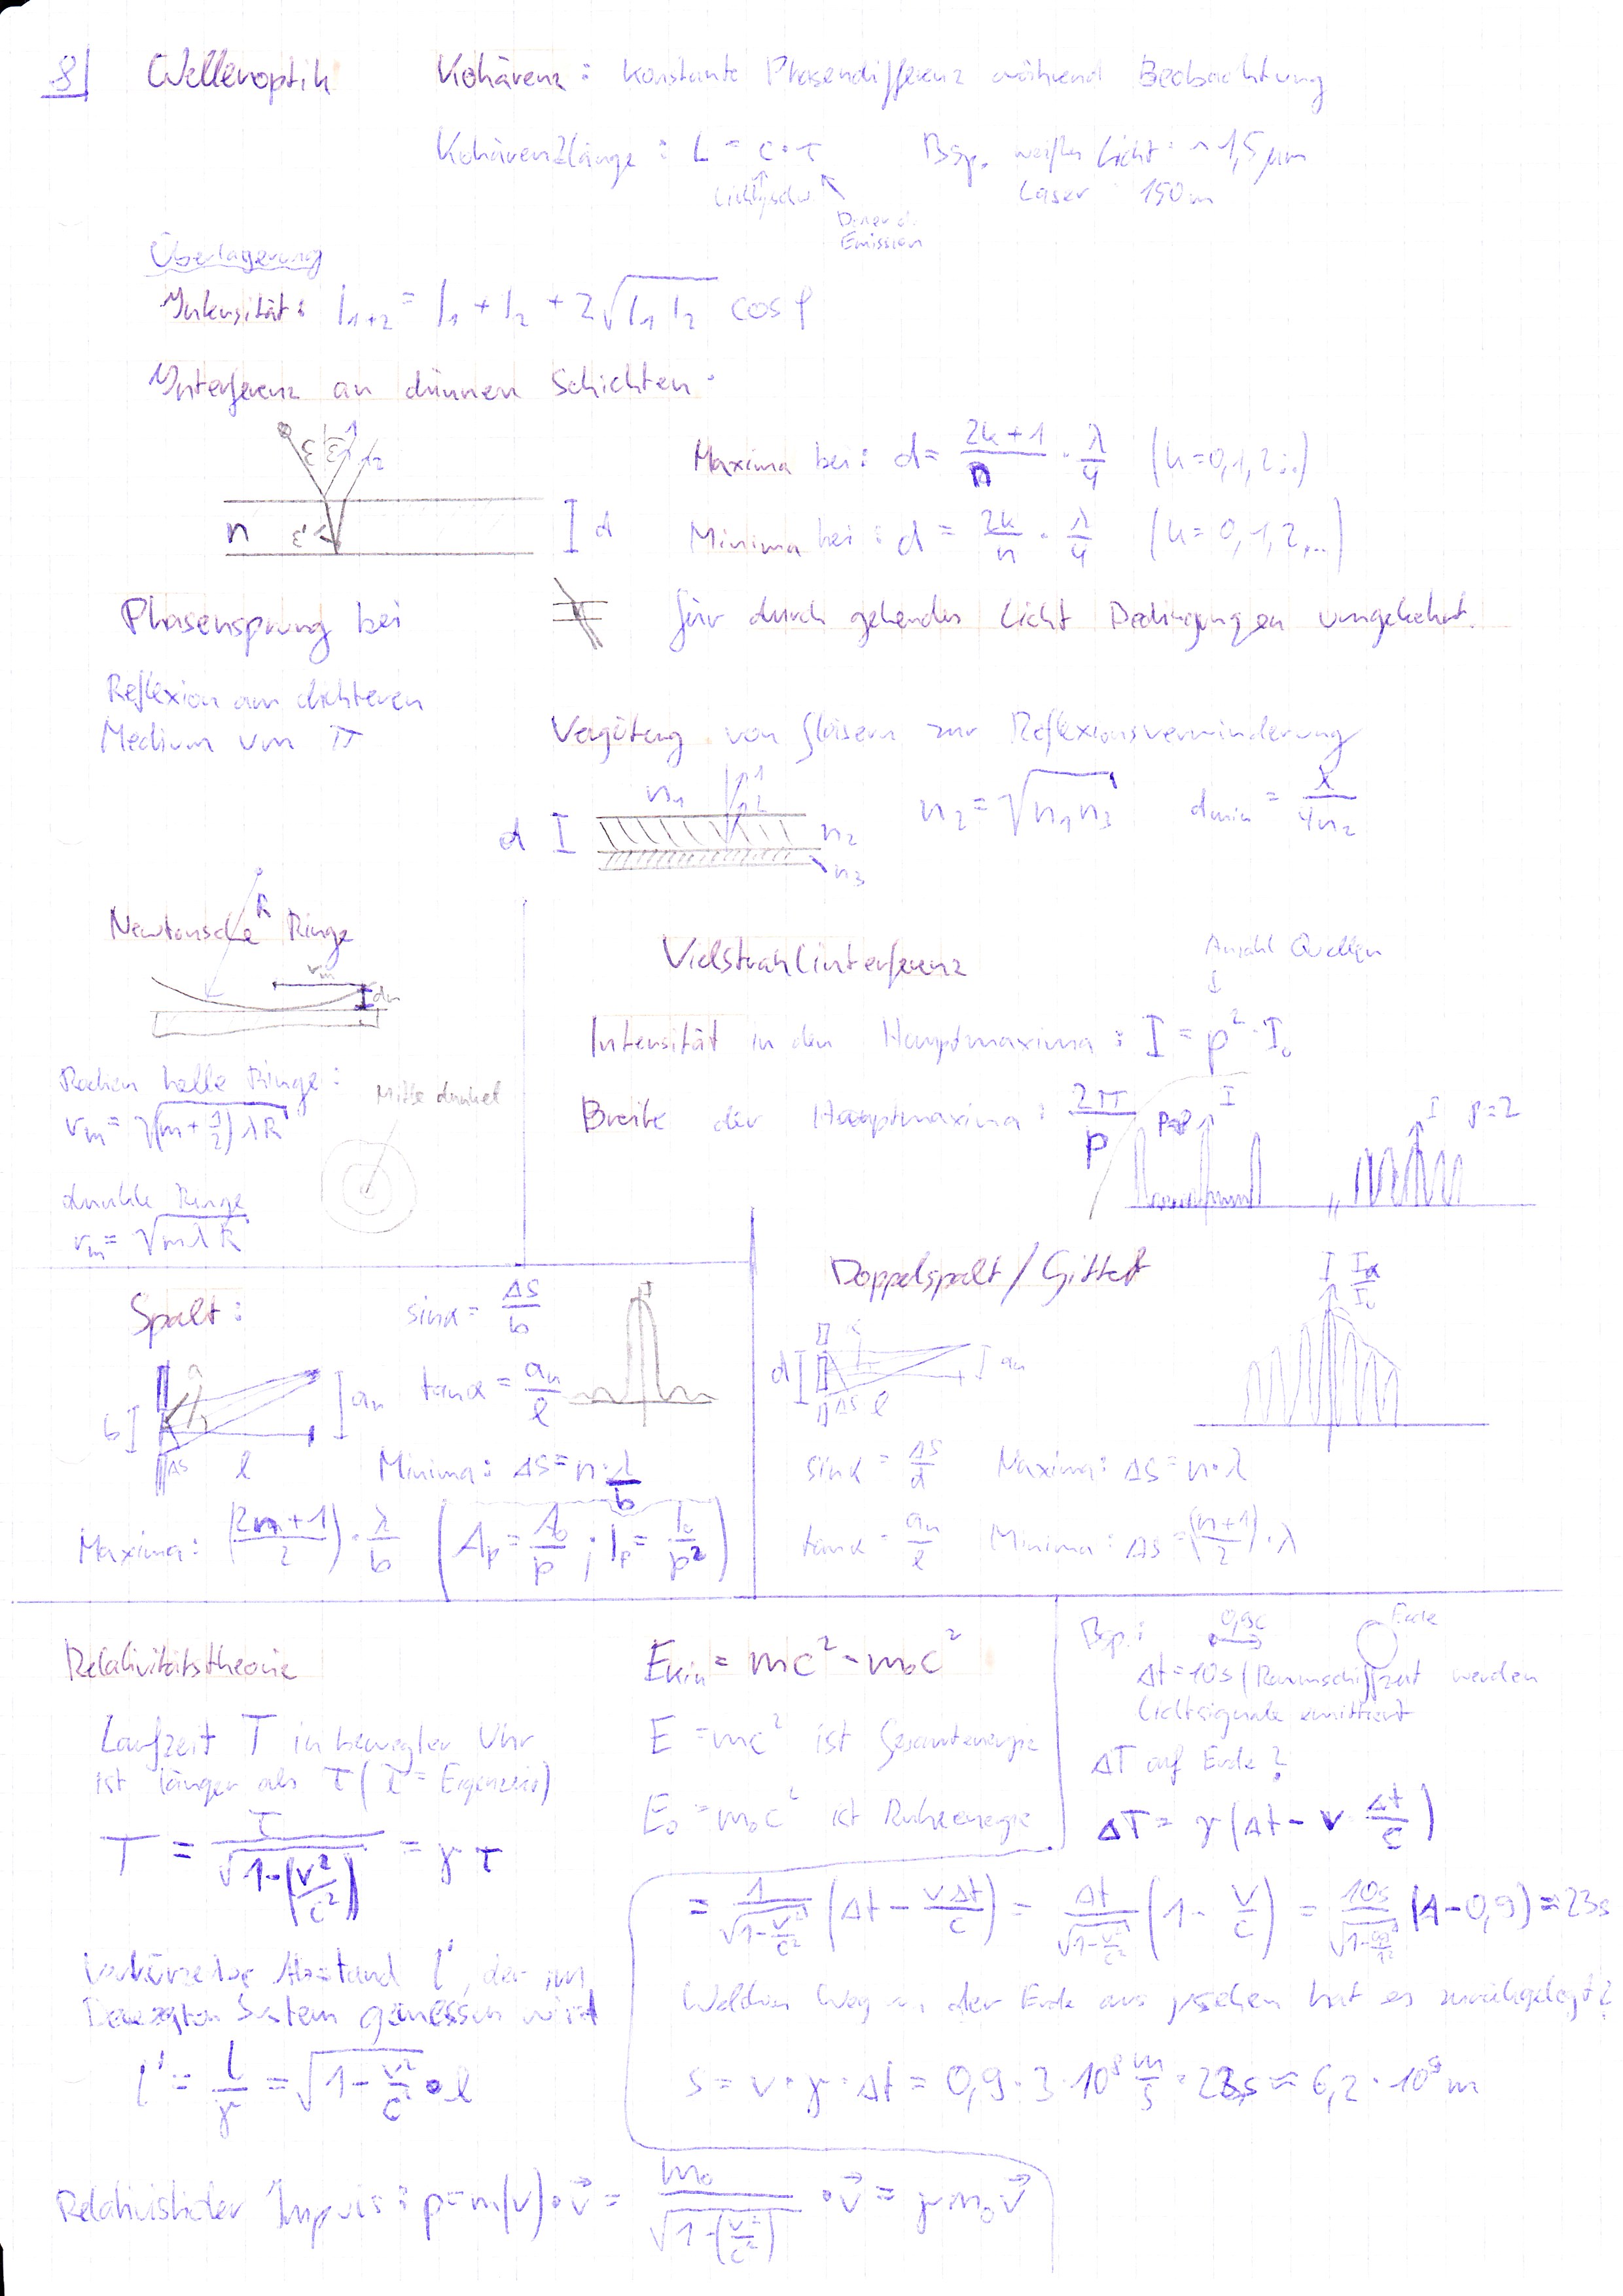 8
Wellenoptik
Kohärenz: konstante Phasendifferenz während Beobachtung
Kohärenzlänge: L = c·τ
Bsp. weißes Licht: ~1,5 µm
Laser 150 m
Lichtgschw
Dauer d. Emission
Überlagerung
Intensität: I₁₊₂ = I₁ + I₂ + 2√(I₁ I₂) cos φ
Interferenz an dünnen Schichten:
ε ε 1 2
n ε' d
Maxima bei: d = (2k+1)/n · λ/4 (k=0,1,2..)
Minima bei: d = 2k/n · λ/4 (k=0,1,2,...)
Phasensprung bei
Reflexion am dichteren
Medium um π
für durch gehendes Licht Bedingungen umgekehrt.
Vergütung von Gläsern zur Reflexionsverminderung
d n₁ 1 2 n₂ n₃
n₂ = √(n₁n₃) d_min = λ/(4n₂)
Newtonsche Ringe
R r_m d_m
Radien helle Ringe:
r_m = √((m+1/2) λR)
Mitte dunkel
dunkle Ringe
r_m = √(mλR)
Vielstrahlinterferenz
Anzahl Quellen
Intensität in den Hauptmaxima: I = p²·I₀
Breite der Hauptmaxima: 2π/p
I
I p=2
Spalt:
sinα = Δs/b
b Δs l a_n
tanα = a_n/l
I
Minima: Δs = n·λ/b
Maxima: (2n+1)/2 · λ/b (A_p = A₀/p ; I_p = I₀/p²)
Doppelspalt/Gitter
d Δs l a_n
I I_α/I₀
sinα = Δs/d Maxima: Δs = n·λ
tanα = a_n/l Minima: Δs = (n+1)/2 · λ
Relativitätstheorie
Laufzeit T in bewegter Uhr
ist länger als τ (τ = Eigenzeit)
T = τ/√(1-(v²/c²)) = γ τ
verkürzte Abstand l', der im
bewegten System gemessen wird
l' = l/γ = √(1-v²/c²) · l
E_kin = mc² - m₀c²
E = mc² ist Gesamtenergie
E₀ = m₀c² ist Ruheenergie
Bsp.: 0,9c Erde
Δt = 10s (Raumschiffzeit werden
Lichtsignale emittiert
ΔT auf Erde?
ΔT = γ(Δt - v Δt/c)
= 1/√(1-v²/c²) (Δt - vΔt/c) = Δt/√(1-v²/c²) (1 - v/c) = 10s (1-0,9) = 23s
Welchen Weg von der Erde aus gesehen hat es zurückgelegt?
s = v·γ·Δt = 0,9·3·10⁸ m/s · 23s ≈ 6,2·10⁹ m
Relativistischer Impuls: p = m(v)·v⃗ = m₀/√(1-(v²/c²)) · v⃗ = γ m₀ v⃗